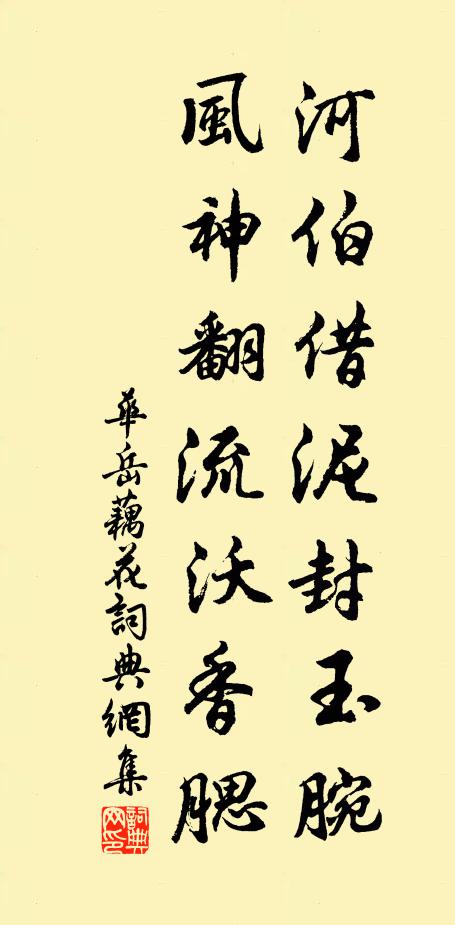 河伯借泥封玉腕
風神翻流沃香腮
華岳藕花詞典網集
詞典网印